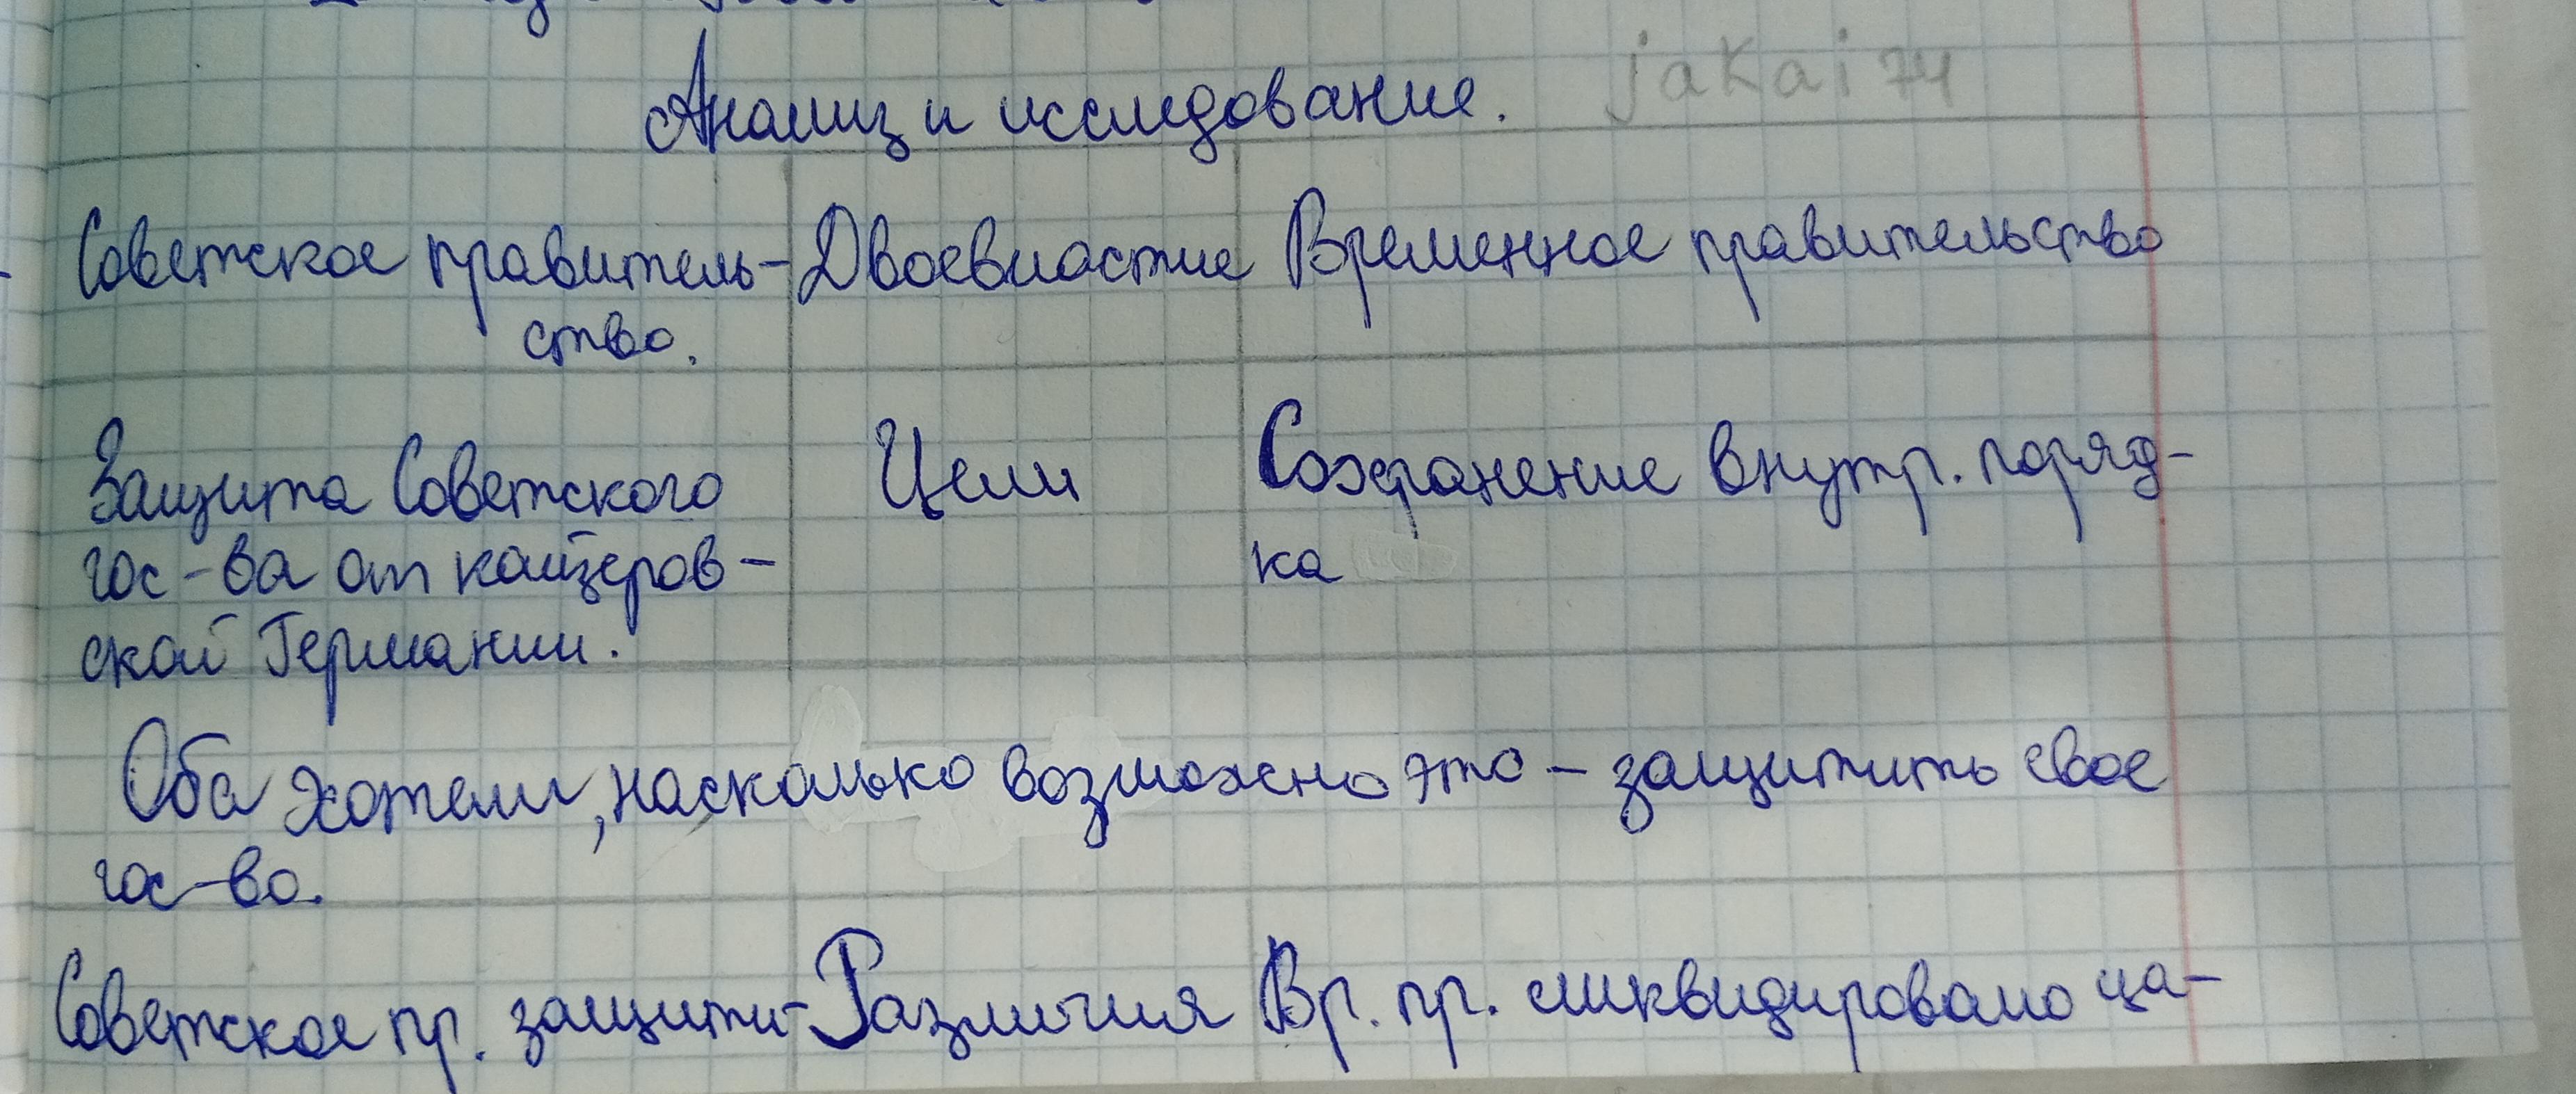 Анализ и исследование. jakai74
Советское правитель- Двоевластие Временное правительство
ство.
Защита Советского Цели Сохранение внутр. поряд-
гос-ва от кайзеров- ка
ской Германии.
Оба хотели, насколько возможно это - защитить свое
гос-во.
Советское пр. защити- Различия Вр. пр. ликвидировало ца-